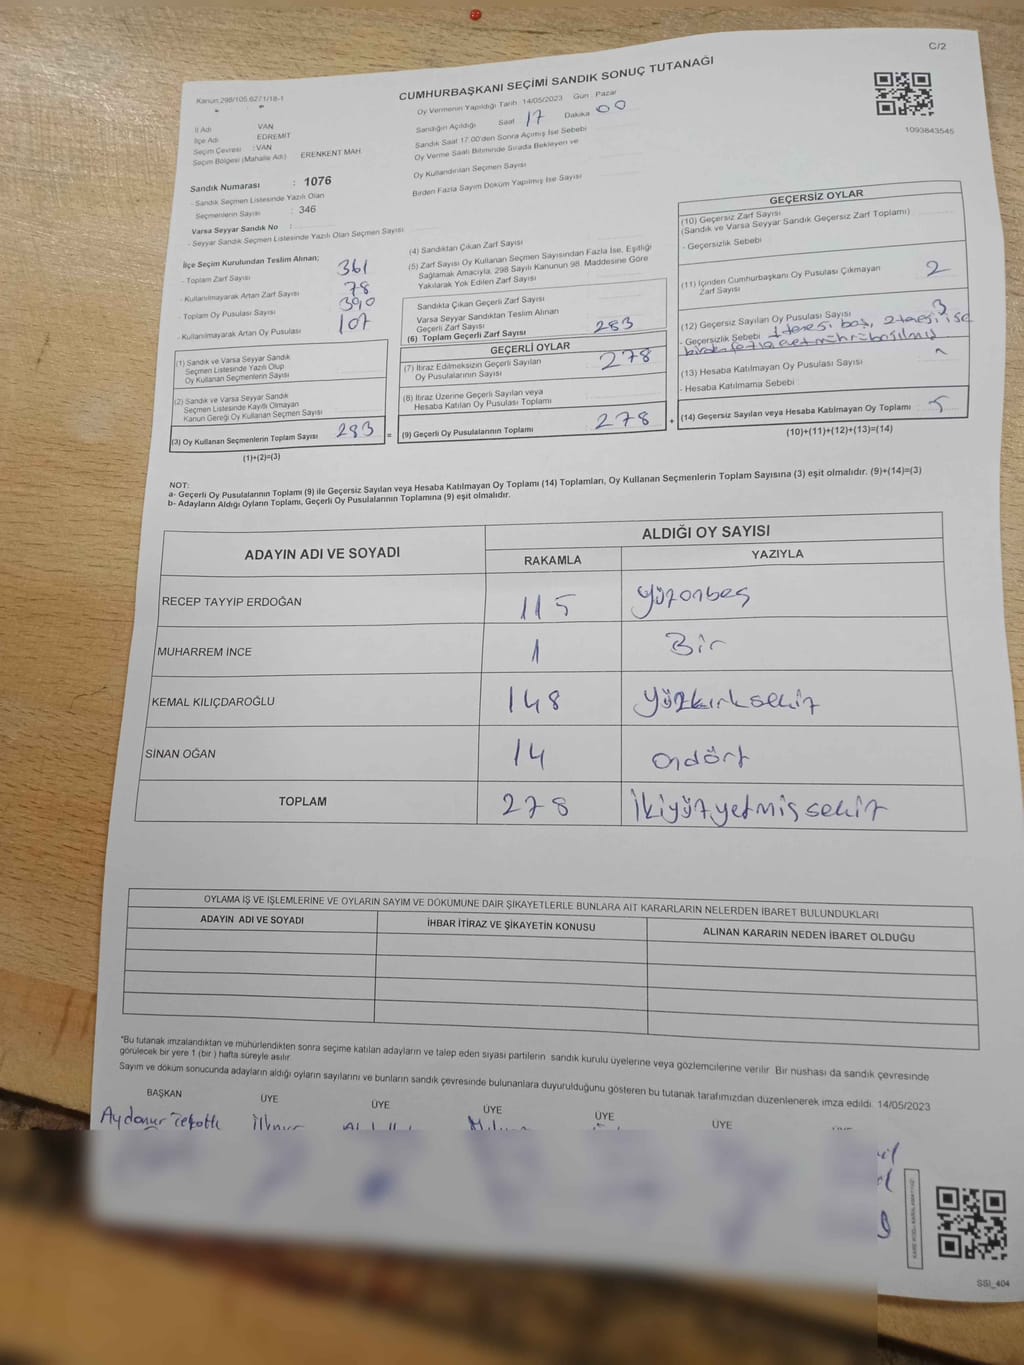 C/2
Kanun:298/105,6271/18-1
CUMHURBAŞKANI SEÇİMİ SANDIK SONUÇ TUTANAĞI
Oy Vermenin Yapıldığı Tarih 14/05/2023 Gün : Pazar
Sandığın Açıldığı Saat 17 Dakika 00
Sandık Saat 17:00'den Sonra Açılmış İse Sebebi
Oy Verme Saati Bitiminde Sırada Bekleyen ve
Oy Kullandırılan Seçmen Sayısı
Birden Fazla Sayım Döküm Yapılmış İse Sayısı
1093843545
İl Adı : VAN
İlçe Adı : EDREMIT
Seçim Çevresi : VAN
Seçim Bölgesi (Mahalle Adı) ERENKENT MAH.
Sandık Numarası : 1076
- Sandık Seçmen Listesinde Yazılı Olan
Seçmenlerin Sayısı : 346
Varsa Seyyar Sandık No :
- Seyyar Sandık Seçmen Listesinde Yazılı Olan Seçmen Sayısı
İlçe Seçim Kurulundan Teslim Alınan;
- Toplam Zarf Sayısı 361
- Kullanılmayarak Artan Zarf Sayısı 78
- Toplam Oy Pusulası Sayısı 390
- Kullanılmayarak Artan Oy Pusulası 107
(1) Sandık ve Varsa Seyyar Sandık
Seçmen Listesinde Yazılı Olup
Oy Kullanan Seçmenlerin Sayısı
(2) Sandık ve Varsa Seyyar Sandık
Seçmen Listesinde Kayıtlı Olmayan
Kanun Gereği Oy Kullanan Seçmen Sayısı
(3) Oy Kullanan Seçmenlerin Toplam Sayısı 283 =
(1)+(2)=(3)
(4) Sandıktan Çıkan Zarf Sayısı
(5) Zarf Sayısı Oy Kullanan Seçmen Sayısından Fazla İse, Eşitliği
Sağlamak Amacıyla, 298 Sayılı Kanunun 98. Maddesine Göre
Yakılarak Yok Edilen Zarf Sayısı
Sandıkta Çıkan Geçerli Zarf Sayısı
Varsa Seyyar Sandıktan Teslim Alınan
Geçerli Zarf Sayısı
(6) Toplam Geçerli Zarf Sayısı 283
GEÇERLİ OYLAR
(7) İtiraz Edilmeksizin Geçerli Sayılan
Oy Pusulalarının Sayısı 278
(8) İtiraz Üzerine Geçerli Sayılan veya
Hesaba Katılan Oy Pusulası Toplamı
(9) Geçerli Oy Pusulalarının Toplamı 278 +
GEÇERSİZ OYLAR
(10) Geçersiz Zarf Sayısı
(Sandık ve Varsa Seyyar Sandık Geçersiz Zarf Toplamı)
- Geçersizlik Sebebi
(11) İçinden Cumhurbaşkanı Oy Pusulası Çıkmayan
Zarf Sayısı 2
(12) Geçersiz Sayılan Oy Pusulası Sayısı 3
- Geçersizlik Sebebi 1 tanesi boş, 2 tanesi ise
birden fazla evet mührü basılmış
(13) Hesaba Katılmayan Oy Pusulası Sayısı
- Hesaba Katılmama Sebebi
(14) Geçersiz Sayılan veya Hesaba Katılmayan Oy Toplamı 5
(10)+(11)+(12)+(13)=(14)
NOT:
a- Geçerli Oy Pusulalarının Toplamı (9) ile Geçersiz Sayılan veya Hesaba Katılmayan Oy Toplamı (14) Toplamları, Oy Kullanan Seçmenlerin Toplam Sayısına (3) eşit olmalıdır. (9)+(14)=(3)
b- Adayların Aldığı Oyların Toplamı, Geçerli Oy Pusulalarının Toplamına (9) eşit olmalıdır.
ADAYIN ADI VE SOYADI ALDIĞI OY SAYISI
RAKAMLA YAZIYLA
RECEP TAYYİP ERDOĞAN 115 Yüzonbeş
MUHARREM İNCE 1 Bir
KEMAL KILIÇDAROĞLU 148 Yüzkırksekiz
SİNAN OĞAN 14 Ondört
TOPLAM 278 İkiyüzyetmişsekiz
OYLAMA İŞ VE İŞLEMLERİNE VE OYLARIN SAYIM VE DÖKÜMÜNE DAİR ŞİKAYETLERLE BUNLARA AİT KARARLARIN NELERDEN İBARET BULUNDUKLARI
ADAYIN ADI VE SOYADI İHBAR İTİRAZ VE ŞİKAYETİN KONUSU ALINAN KARARIN NEDEN İBARET OLDUĞU
*Bu tutanak imzalandıktan ve mühürlendikten sonra seçime katılan adayların ve talep eden siyasi partilerin sandık kurulu üyelerine veya gözlemcilerine verilir. Bir nüshası da sandık çevresinde
görülecek bir yere 1 (bir ) hafta süreyle asılır.
Sayım ve döküm sonucunda adayların aldığı oyların sayılarını ve bunların sandık çevresinde bulunanlara duyurulduğunu gösteren bu tutanak tarafımızdan düzenlenerek imza edildi. 14/05/2023
BAŞKAN ÜYE ÜYE ÜYE ÜYE ÜYE
Aydonur İlknur
SSI_404